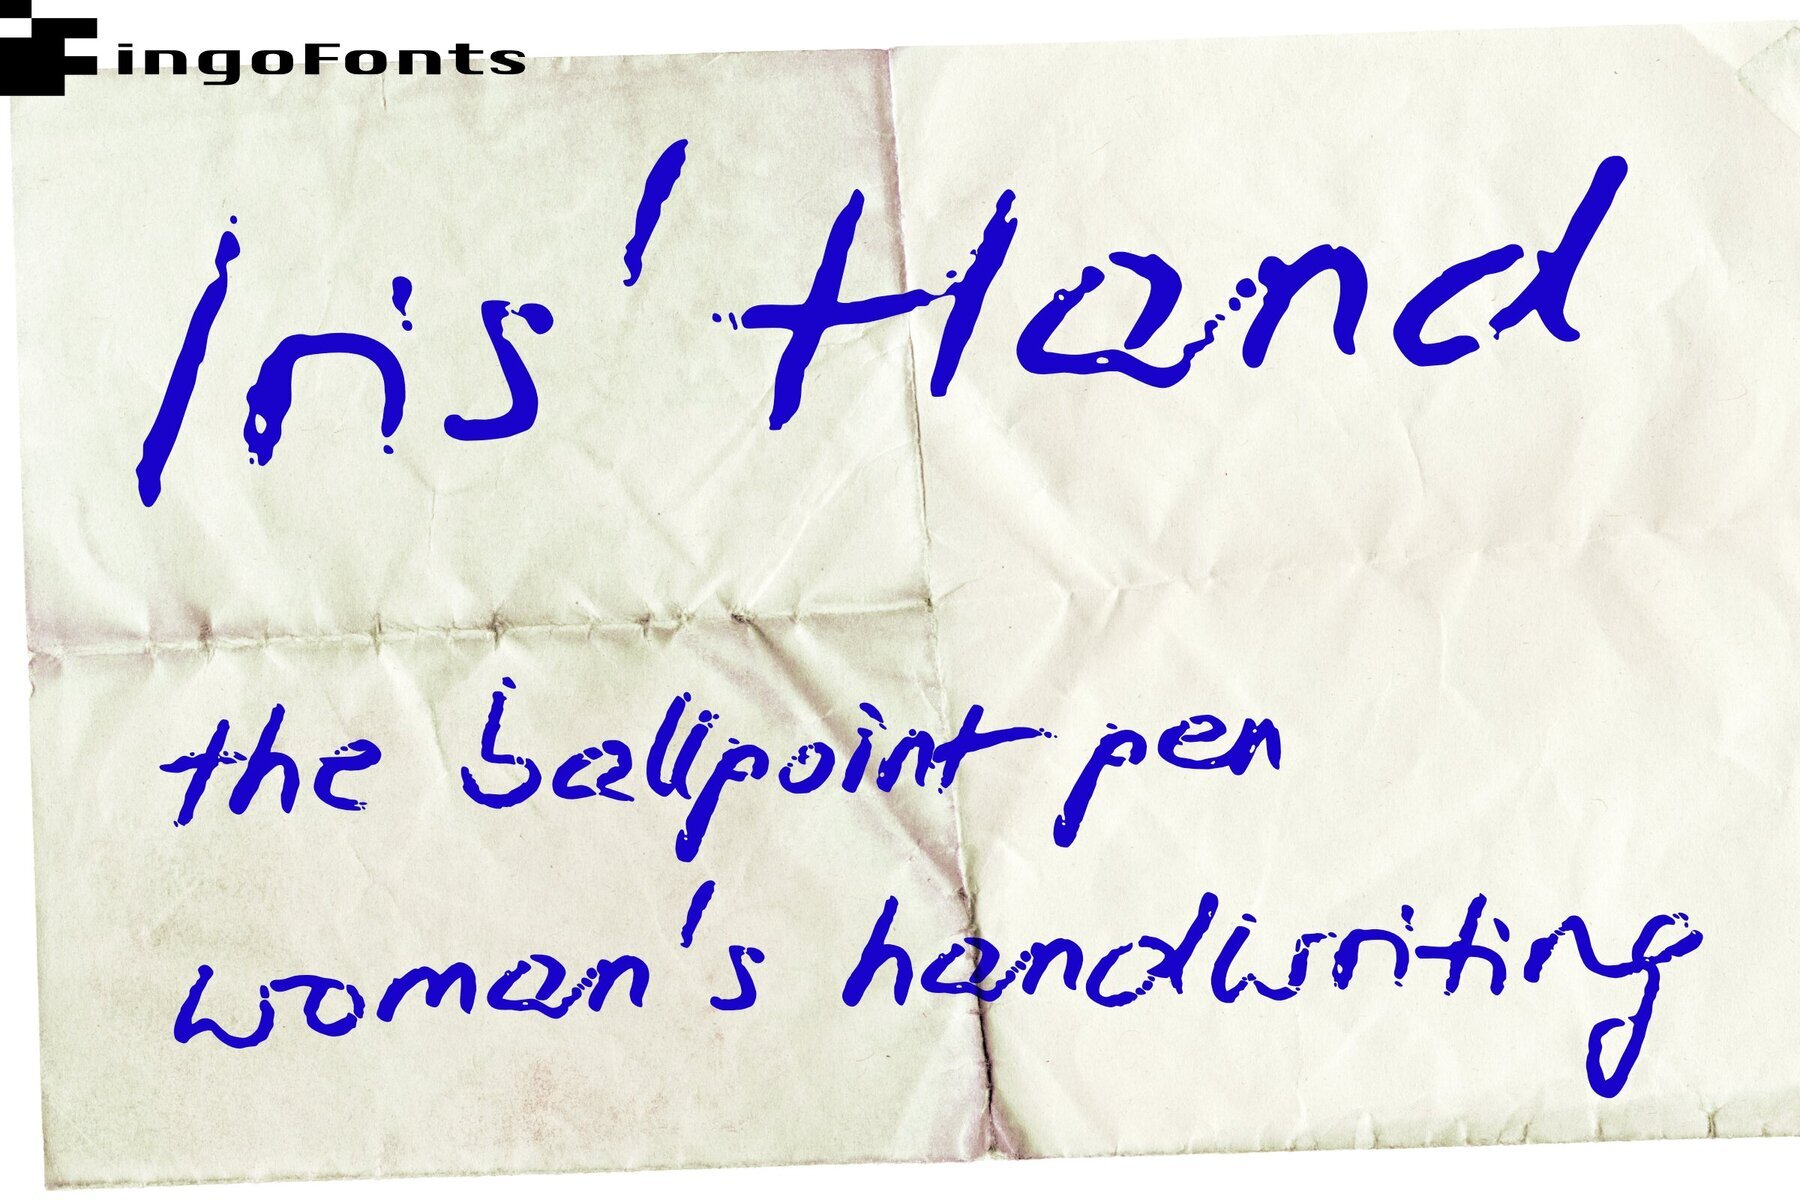 ingoFonts
Iris' Hand
the ballpoint pen
woman's handwriting